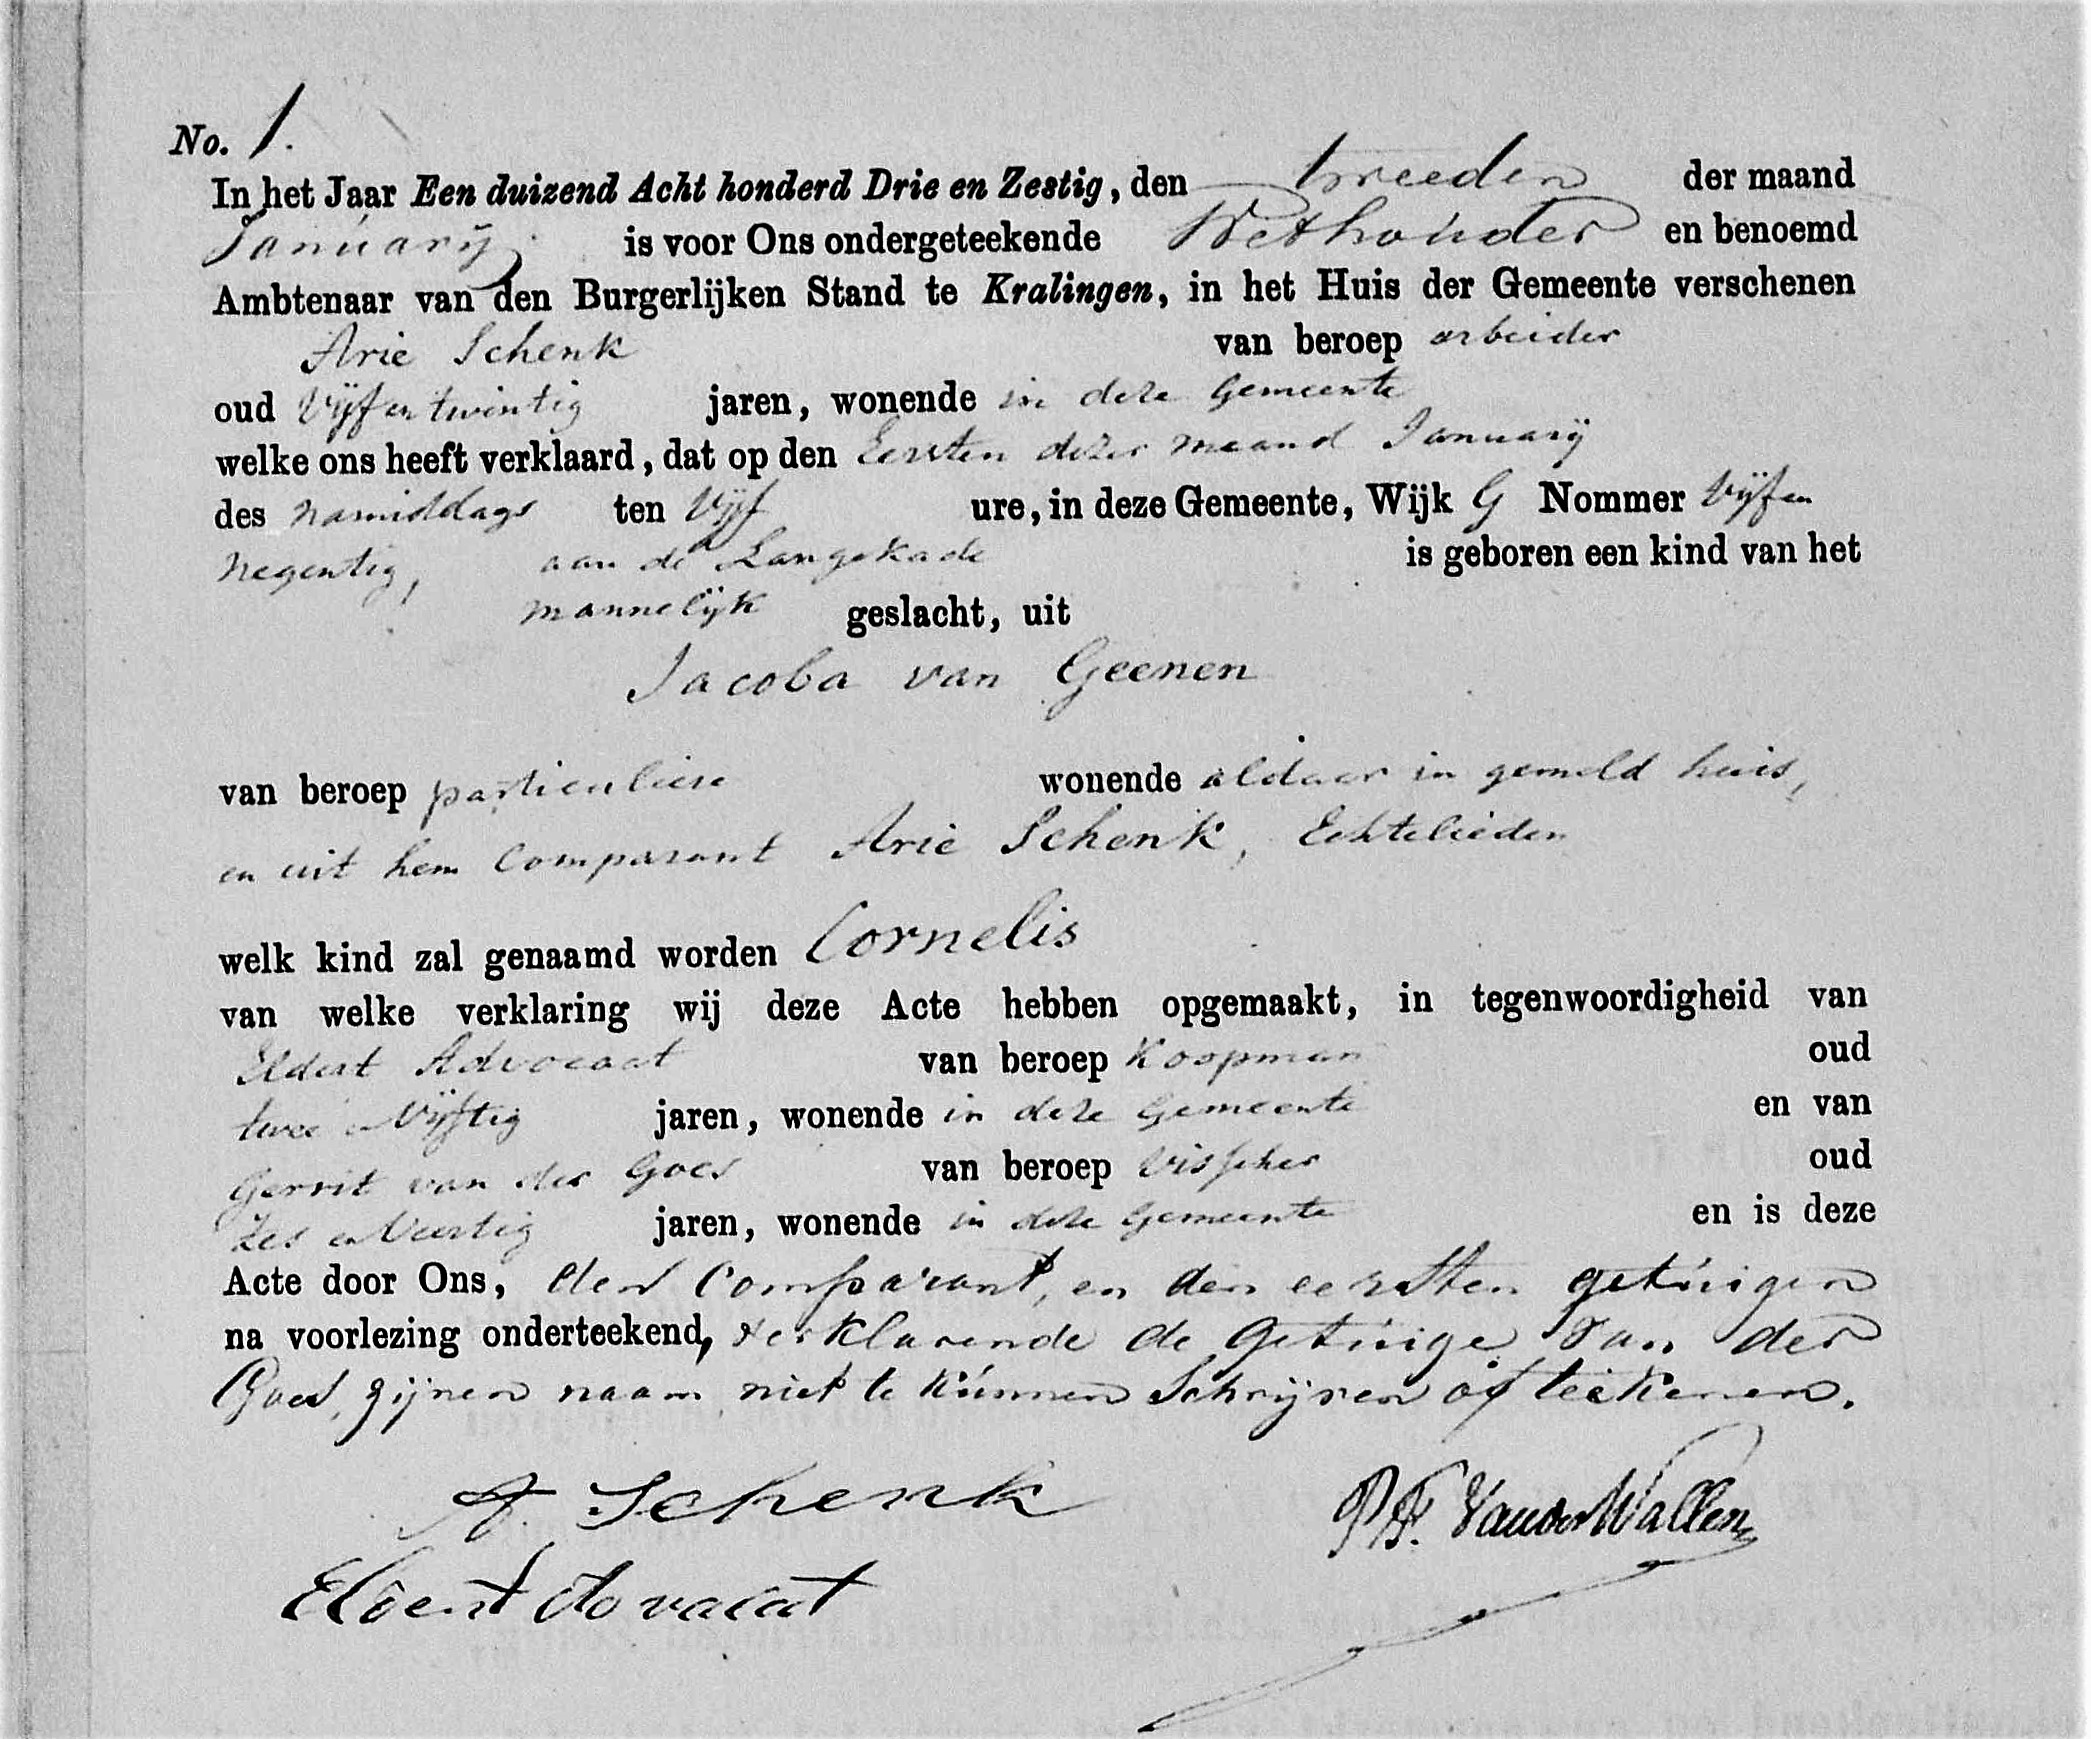 No. 1.
In het Jaar Een duizend Acht honderd Drie en Zestig, den tweeden der maand
January is voor Ons ondergeteekende Wethouder en benoemd
Ambtenaar van den Burgerlijken Stand te Kralingen, in het Huis der Gemeente verschenen
Arie Schenk van beroep arbeider
oud Vijf en twintig jaren, wonende in deze Gemeente
welke ons heeft verklaard, dat op den Eersten dezer maand January
des namiddags ten Vijf ure, in deze Gemeente, Wijk G Nommer Vijf en
negentig, aan de Langekade is geboren een kind van het
mannelijk geslacht, uit
Jacoba van Geenen
van beroep particuliere wonende aldaar in gemeld huis,
en uit hem Comparant Arie Schenk, Echtelieden
welk kind zal genaamd worden Cornelis
van welke verklaring wij deze Acte hebben opgemaakt, in tegenwoordigheid van
Eldert Advocaat van beroep Koopman oud
twee en Vijftig jaren, wonende in deze Gemeente en van
Gerrit van der Goes van beroep Visscher oud
Zes en Veertig jaren, wonende in deze Gemeente en is deze
Acte door Ons, den Comparant, en den eersten getuigen
na voorlezing onderteekend, verklarende de getuige van der
Goes, zijnen naam niet te kunnen Schrijven of teekenen.
A. Schenk
P.F. Van der Wallen
Eldert Advocaat